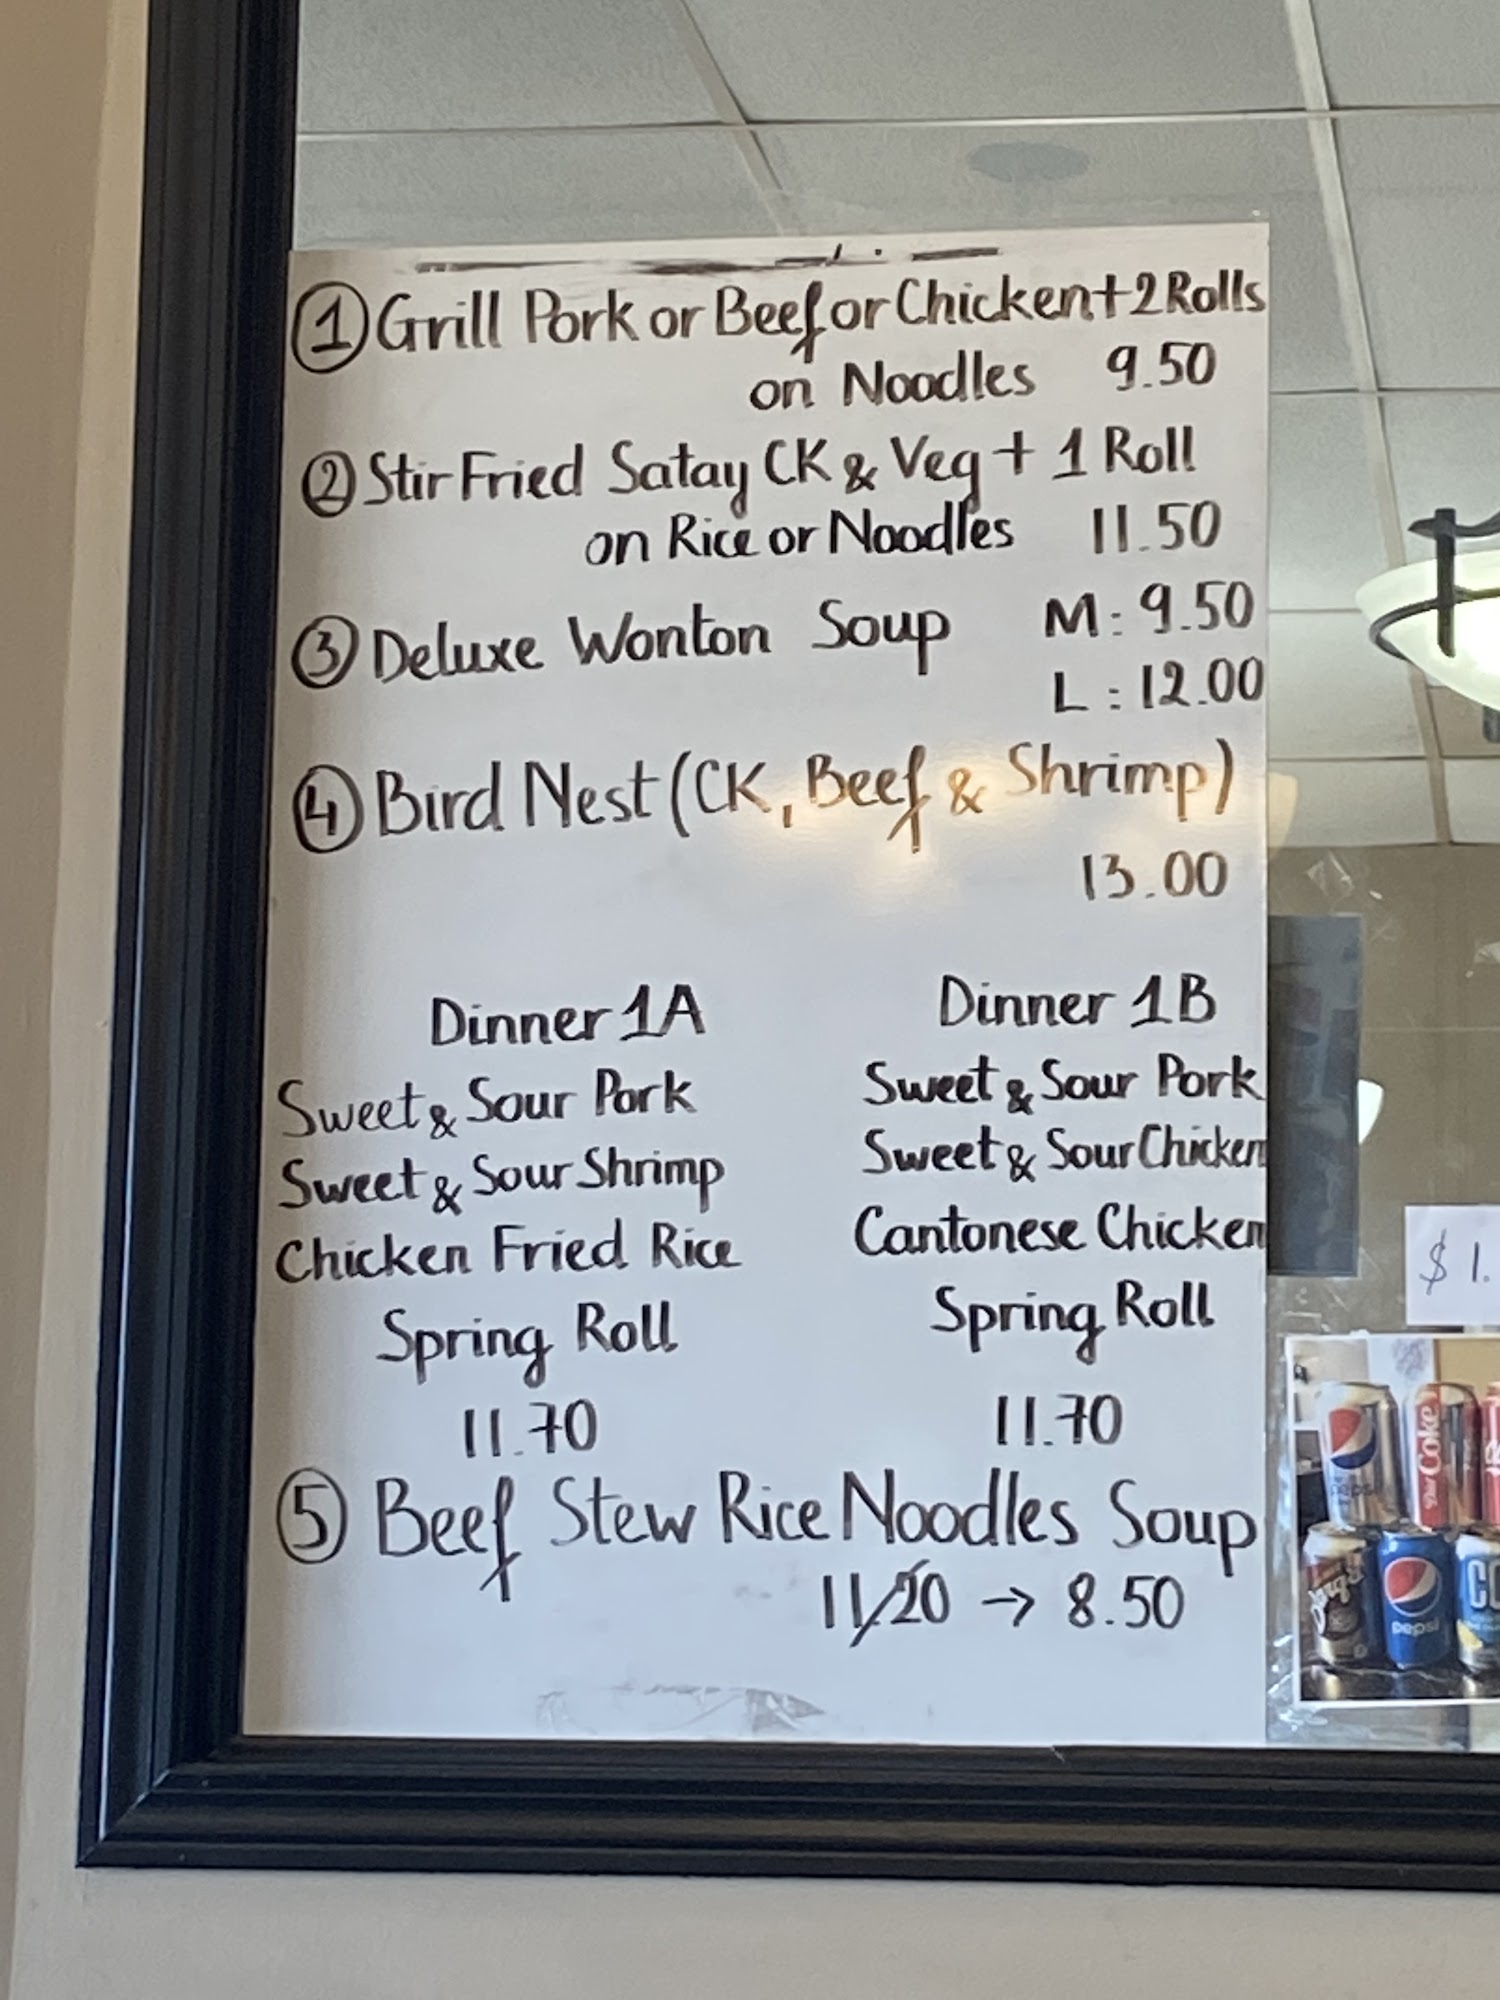 ① Grill Pork or Beef or Chicken + 2 Rolls
on Noodles 9.50
② Stir Fried Satay CK & Veg + 1 Roll
on Rice or Noodles 11.50
③ Deluxe Wonton Soup M: 9.50
L: 12.00
④ Bird Nest (CK, Beef & Shrimp)
13.00
Dinner 1A
Sweet & Sour Pork
Sweet & Sour Shrimp
Chicken Fried Rice
Spring Roll
11.70
Dinner 1B
Sweet & Sour Pork
Sweet & Sour Chicken
Cantonese Chicken
Spring Roll
11.70
⑤ Beef Stew Rice Noodles Soup
11.20 → 8.50
$1.
pepsi
Diet Coke
pepsi